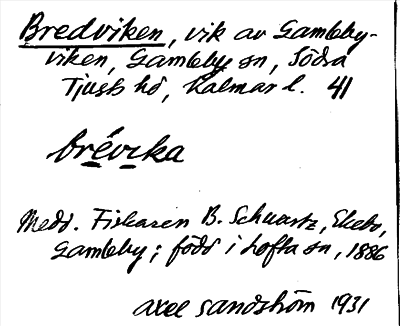 Bredviken, vik av Gamleby-
viken, Gamleby sn, Södra
Tjusts hd, Kalmar l. 41
brévika
Medd. Fiskaren B. Schwartz, Ekebo,
Gamleby; född i Lofta sn, 1886
Axel Sandström 1931